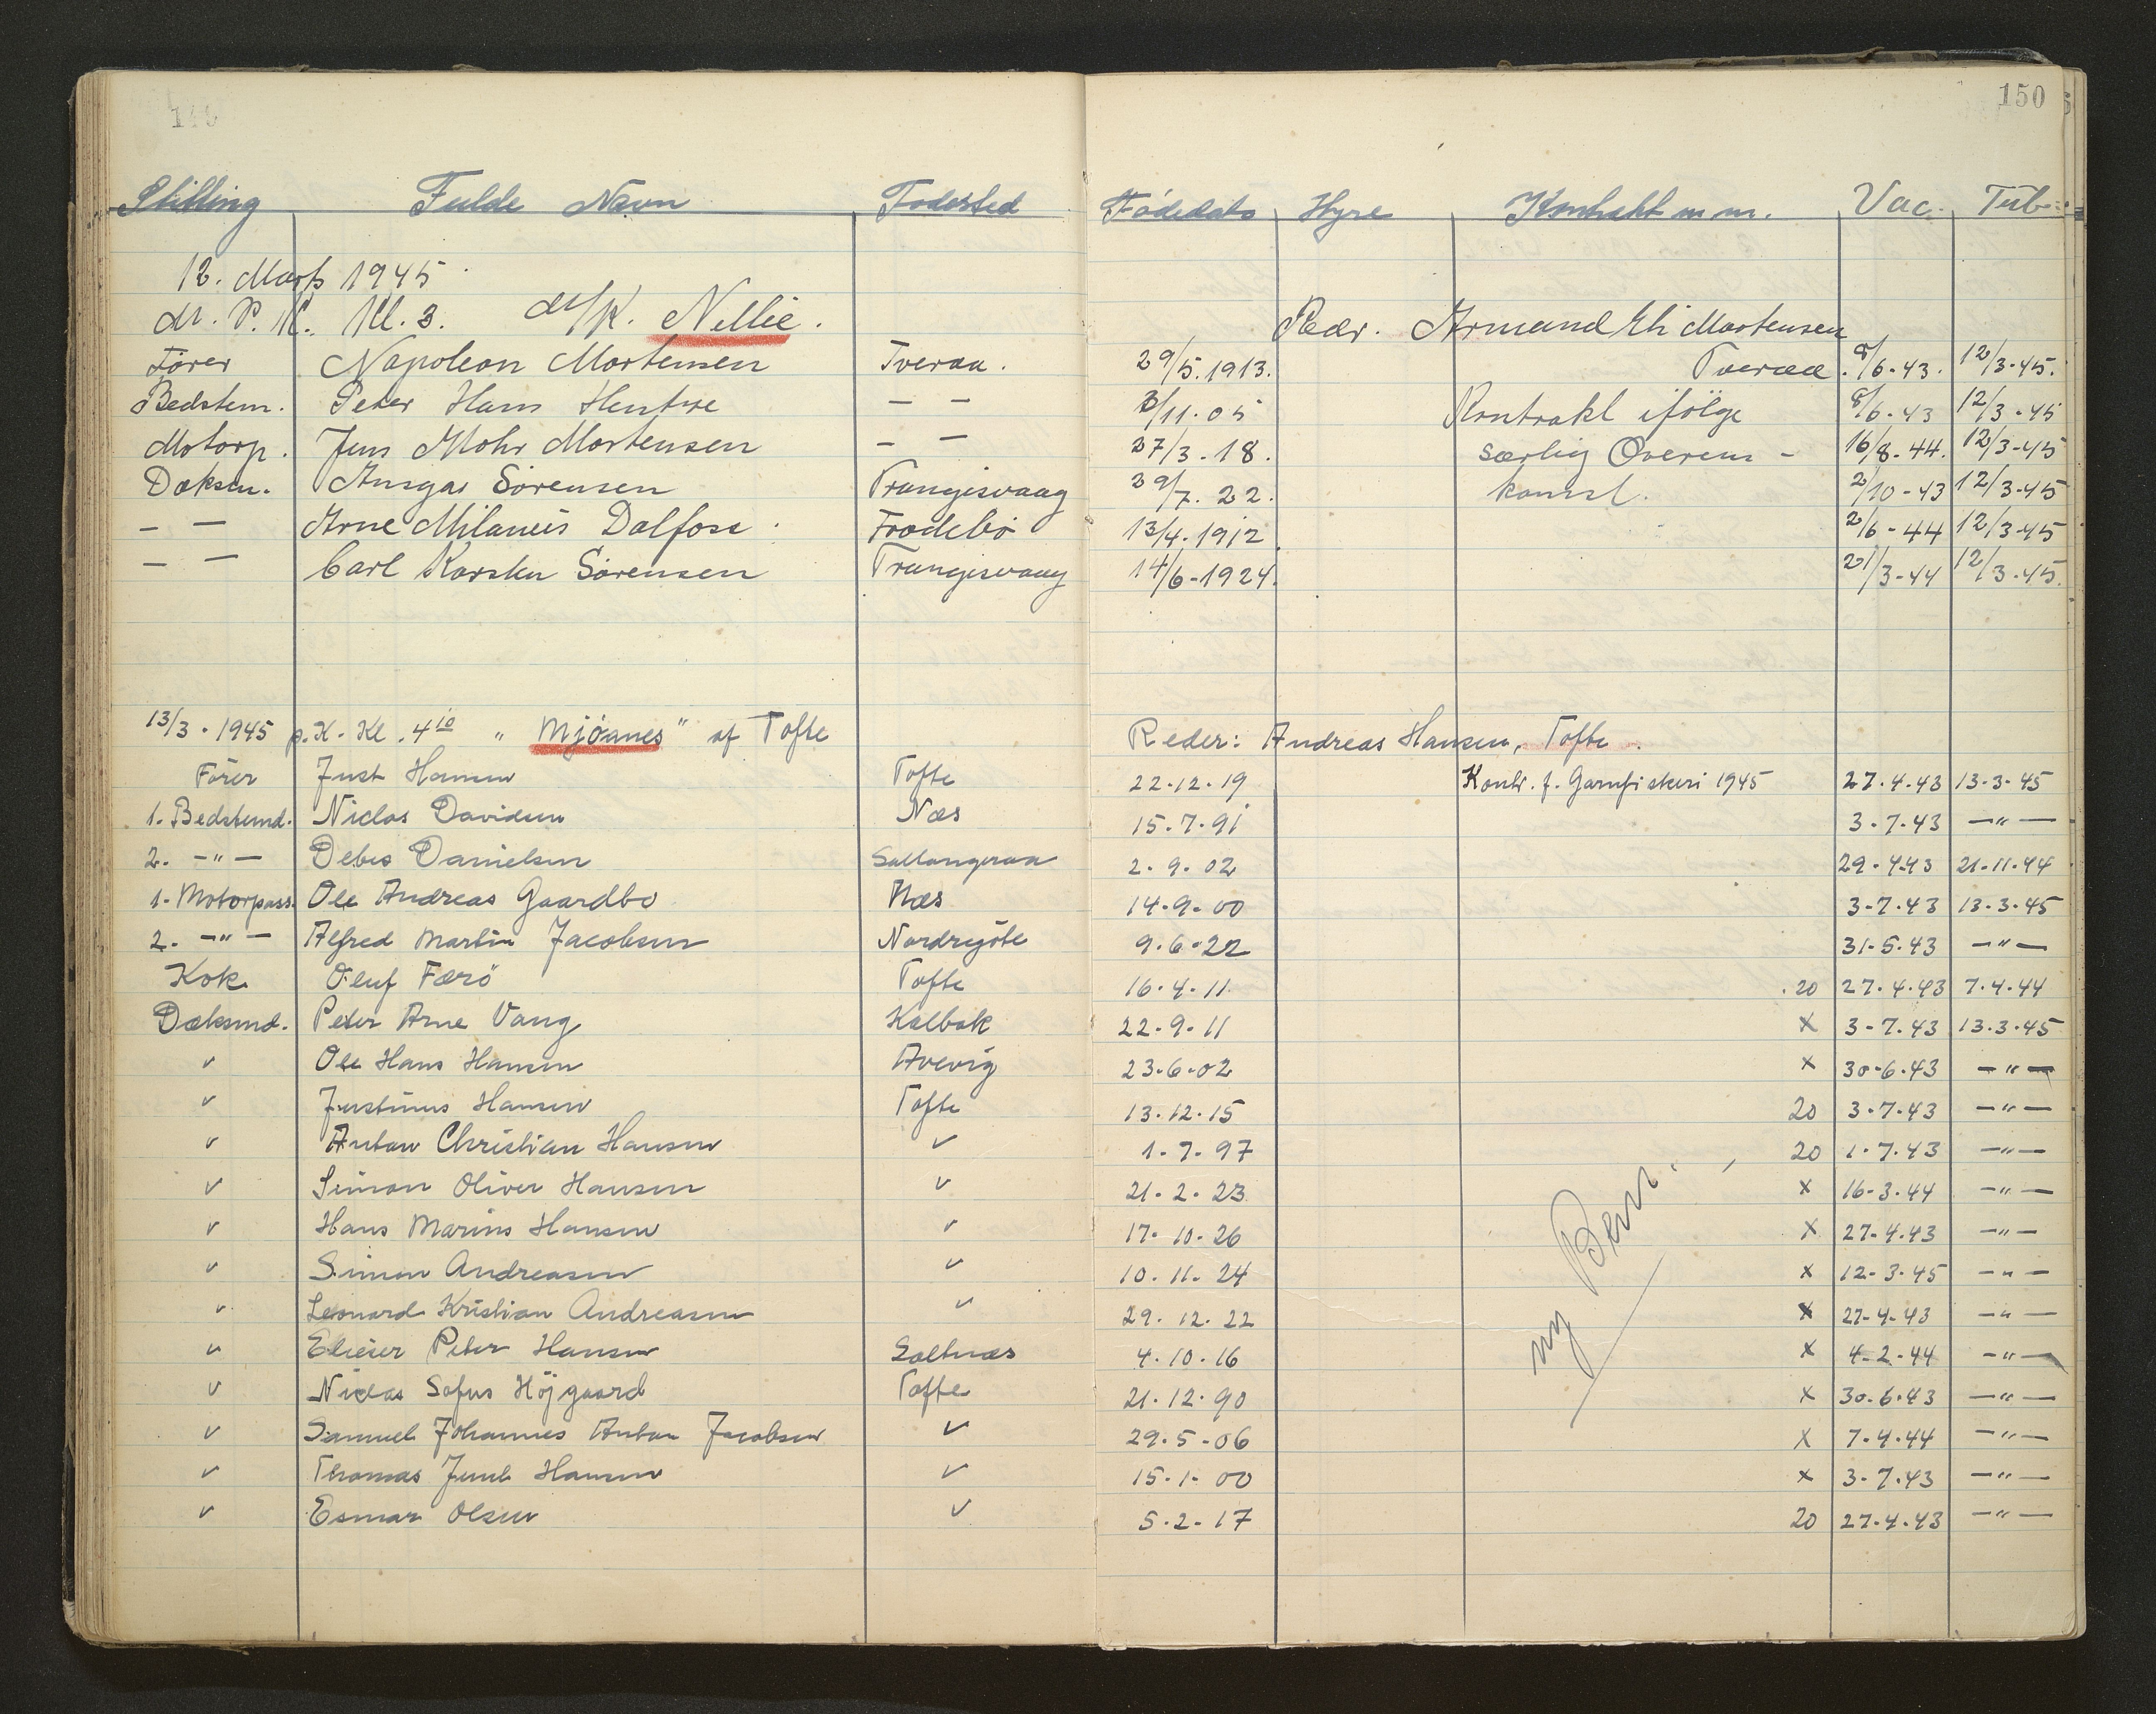 150
Stilling Fulde Navn Fødested Fødedato Hyre Kontrakt m m. Vac. Tub.
12. Marts 1945
M/K. Nellie. Redr. Armand Eli Mortensen
Fører Napoleon Mortensen Tveraa. 29/5.1913. Tveraa. 8/6-43. 12/3-45.
Bedstem. Peter Hans Hentze — — 3/11.05 Kontrakt ifølge 8/6-43 12/3-45
Motorp. Jens Mohr Mortensen — — 27/3-18. særlig Overens- 16/8-44. 12/3-45
Dæksm. Ansgar Sörensen Trangisvaag 29/7. 22. komst. 2/10-43 12/3-45
— — Arne Milanius Dalfoss Frodebö 13/4.1912 2/6-44 12/3-45
— — Carl Karsten Sörensen Trangisvaag 14/6-1924. 21/3-44 12/3-45.
13/3.1945 p.K. Kl. 4 10 „ Mjóanes" af Tofte Reder: Andreas Hansen, Tofte.
Förer Just Hansen Tofte 22-12-19 Kontr. f. Garnfiskeri 1945 27.4.43 13-3-45
1. Bedstemd. Niclas Davidsen Næs 15.7.91 3-7.43 —"—
2. —"— Debes Danielsen Saltangeraa 2-9.02 29.4.43 21.11.44
1. Motorpass. Ole Andreas Gaardbo Næs 14-9-00 3-7.43 13-3.45
2. —"— Alfred Martin Jacobsen Nordregöte 9.6-22 31-5.43 —"—
Kok Oluf Færö Tofte 16.4.11 20 27.4.43 7.4.44
Dæksmd. Peter Arne Vang Kalbak 22-9.11 x 3-7.43 13.3.45
v Ole Hans Hansen Avevig 23-6-02 x 30-6.43 —"—
v Justinus Hansen Tofte 13.12.15 20 3-7.43 —"—
v Anton Christian Hansen v 1-7.97 20 1.7.43 —"—
v Simon Oliver Hansen v 21-2-23 x 16-3.44 —"—
v Hans Marius Hansen v 17-10-26 x 27-4.43 —"—
v Simon Andreasen v 10.11.24 x 12-3.45 —"—
v Leonard Kristian Andreasen v 29.12.22 x 27-4-43 —"—
v Elieser Peter Hansen Saltnæs 4.10.16 x 4-2-44 —"—
v Niclas Sofus Höjgaard Tofte 21.12.90 x 30-6.43 —"—
v Samuel Johannes Anton Jacobsen v 29-5-06 x 7-4.44 —"—
v Thomas Juul Hansen v 15-1-00 x 3-7.43 —"—
v Esmar Olsen v 5-2-17 20 27.4.43 —"—
ny